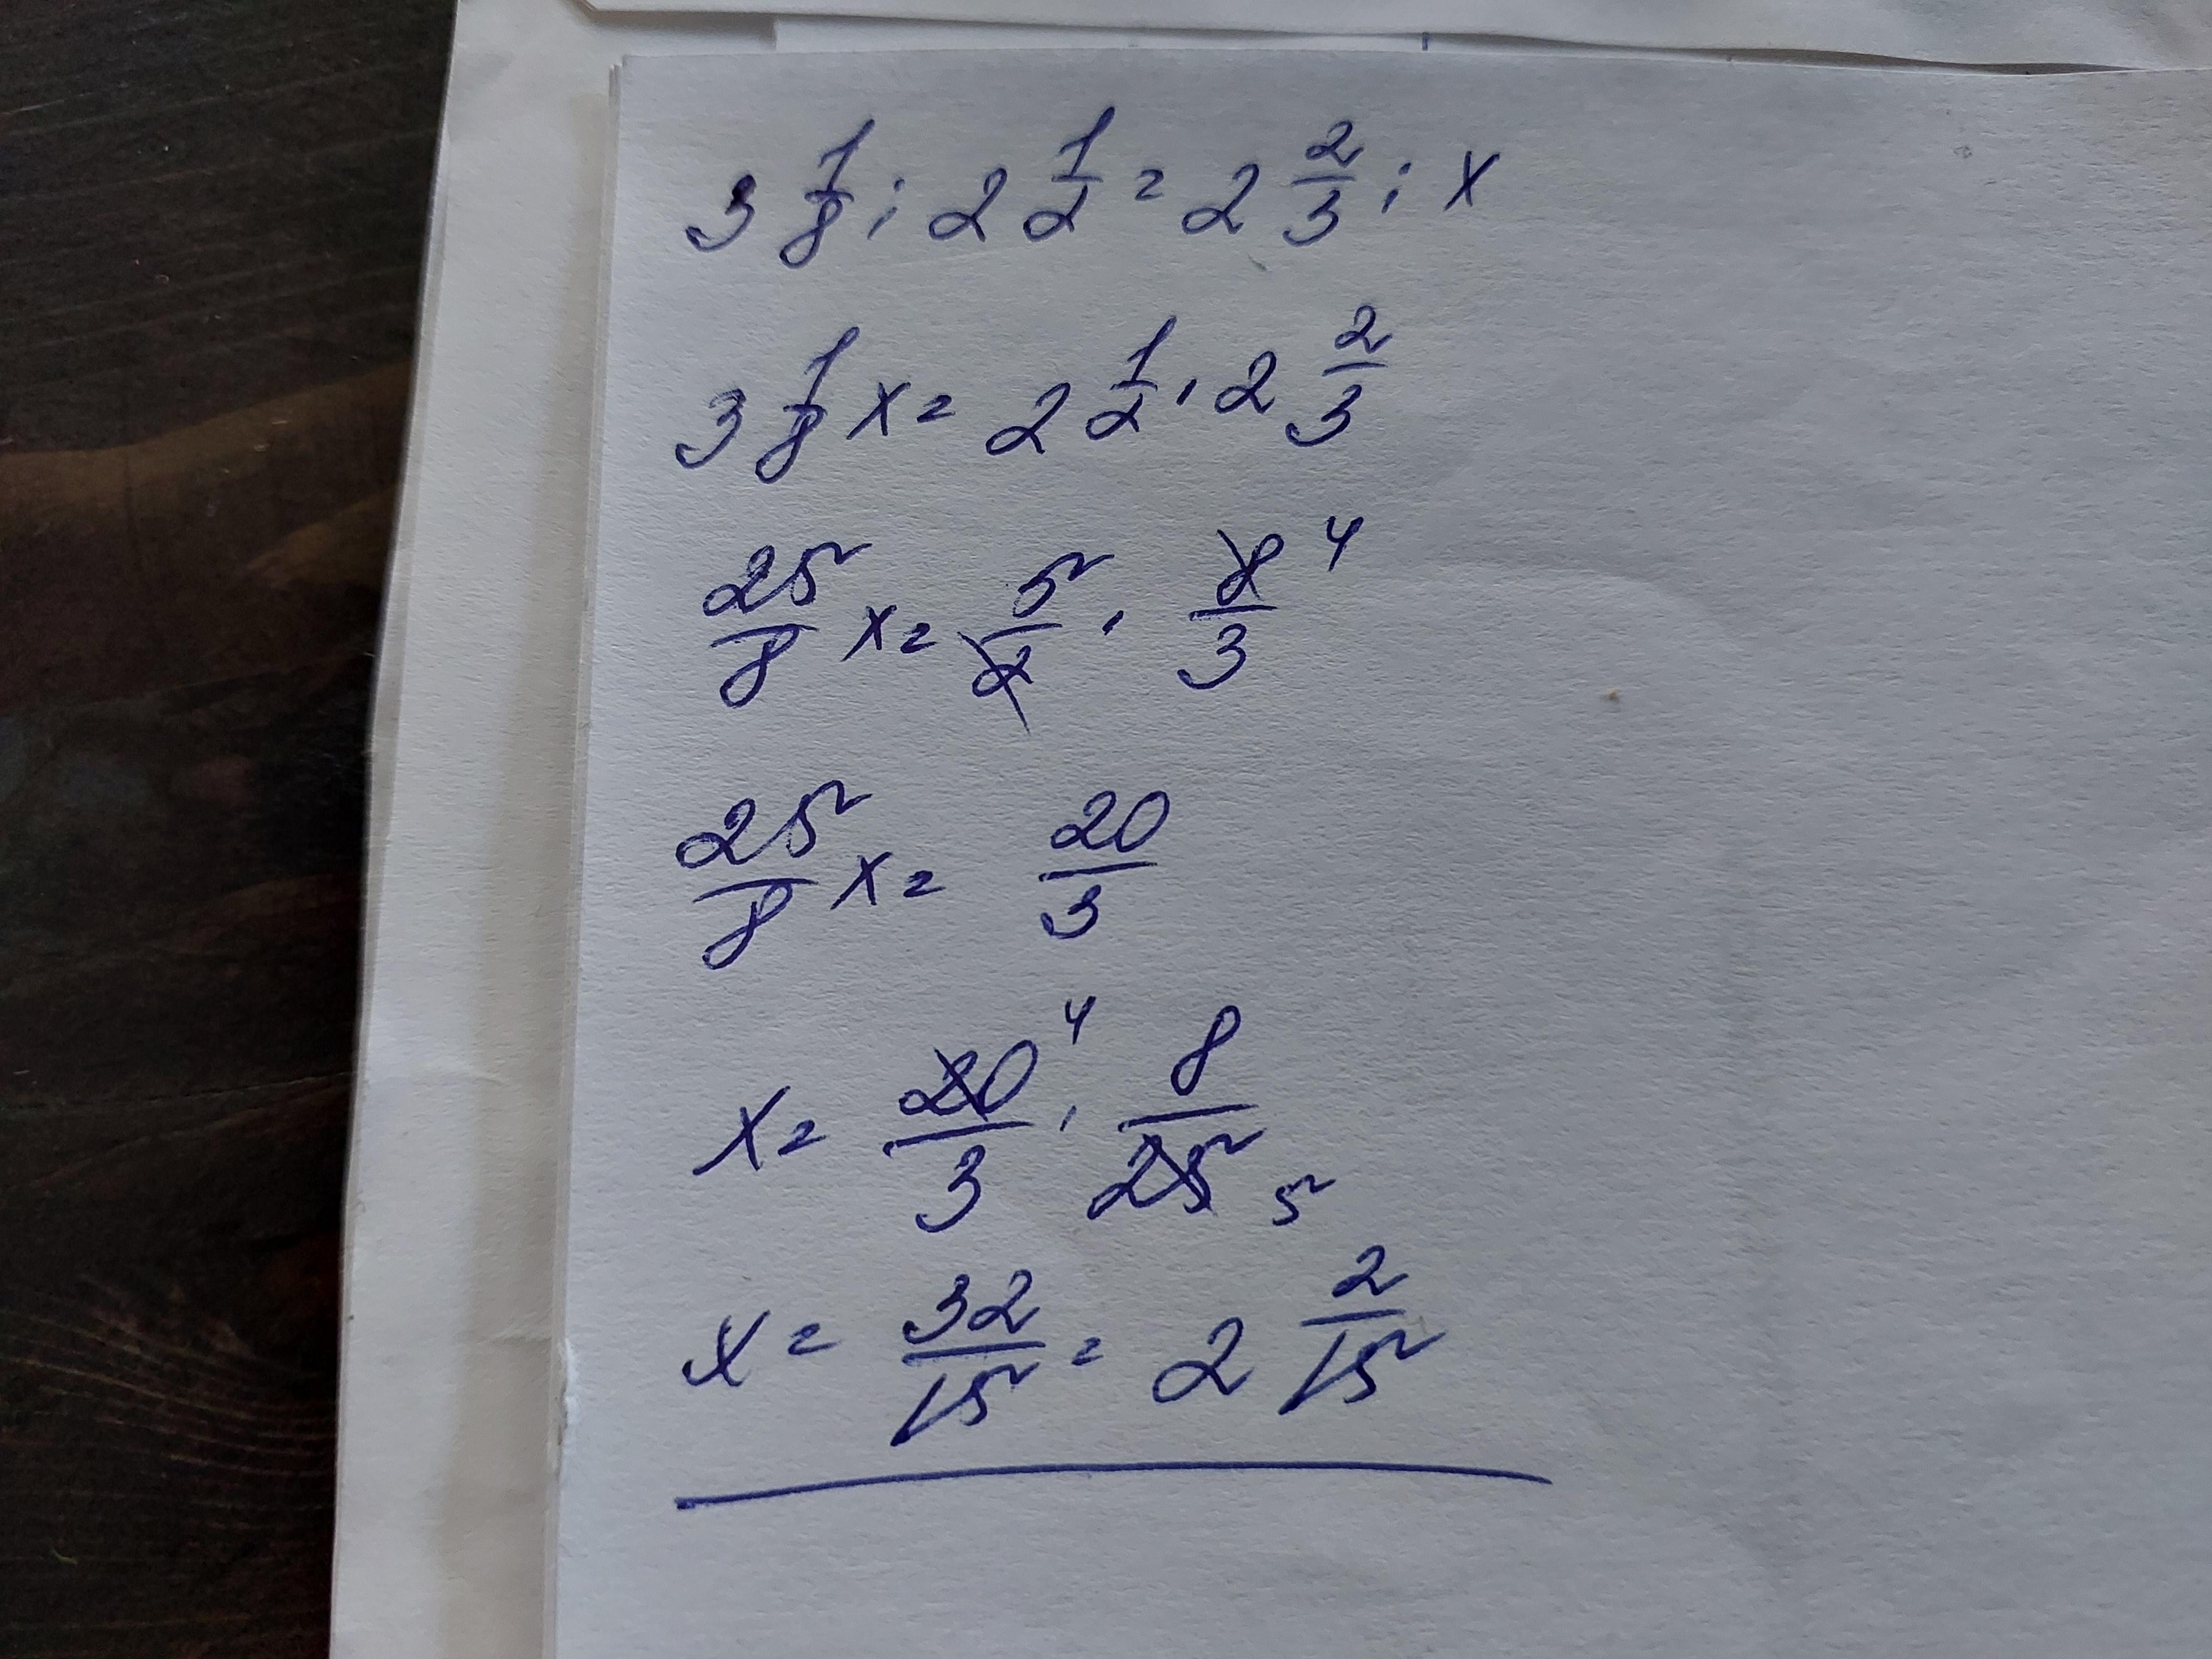 3 1/8 : 2 1/2 = 2 2/3 : x
3 1/8 x = 2 1/2 · 2 2/3
25/8 x = 5/2 · 8/3 4
25/8 x = 20/3
x = 20/3 4 · 8/25 5
x = 32/15 = 2 2/15